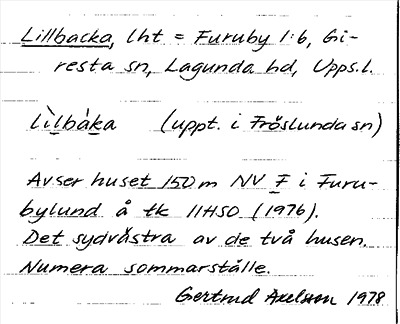 Lillbacka, lht = Furuby 1:6, Gi-
resta sn, Lagunda hd, Upps.l.
lìlbàka (uppt. i Fröslunda sn)
Avser huset 150 m NV F i Furu-
bylund å tk 11H5O (1976).
Det sydvästra av de två husen.
Numera sommarställe.
Gertrud Axelsson 1978